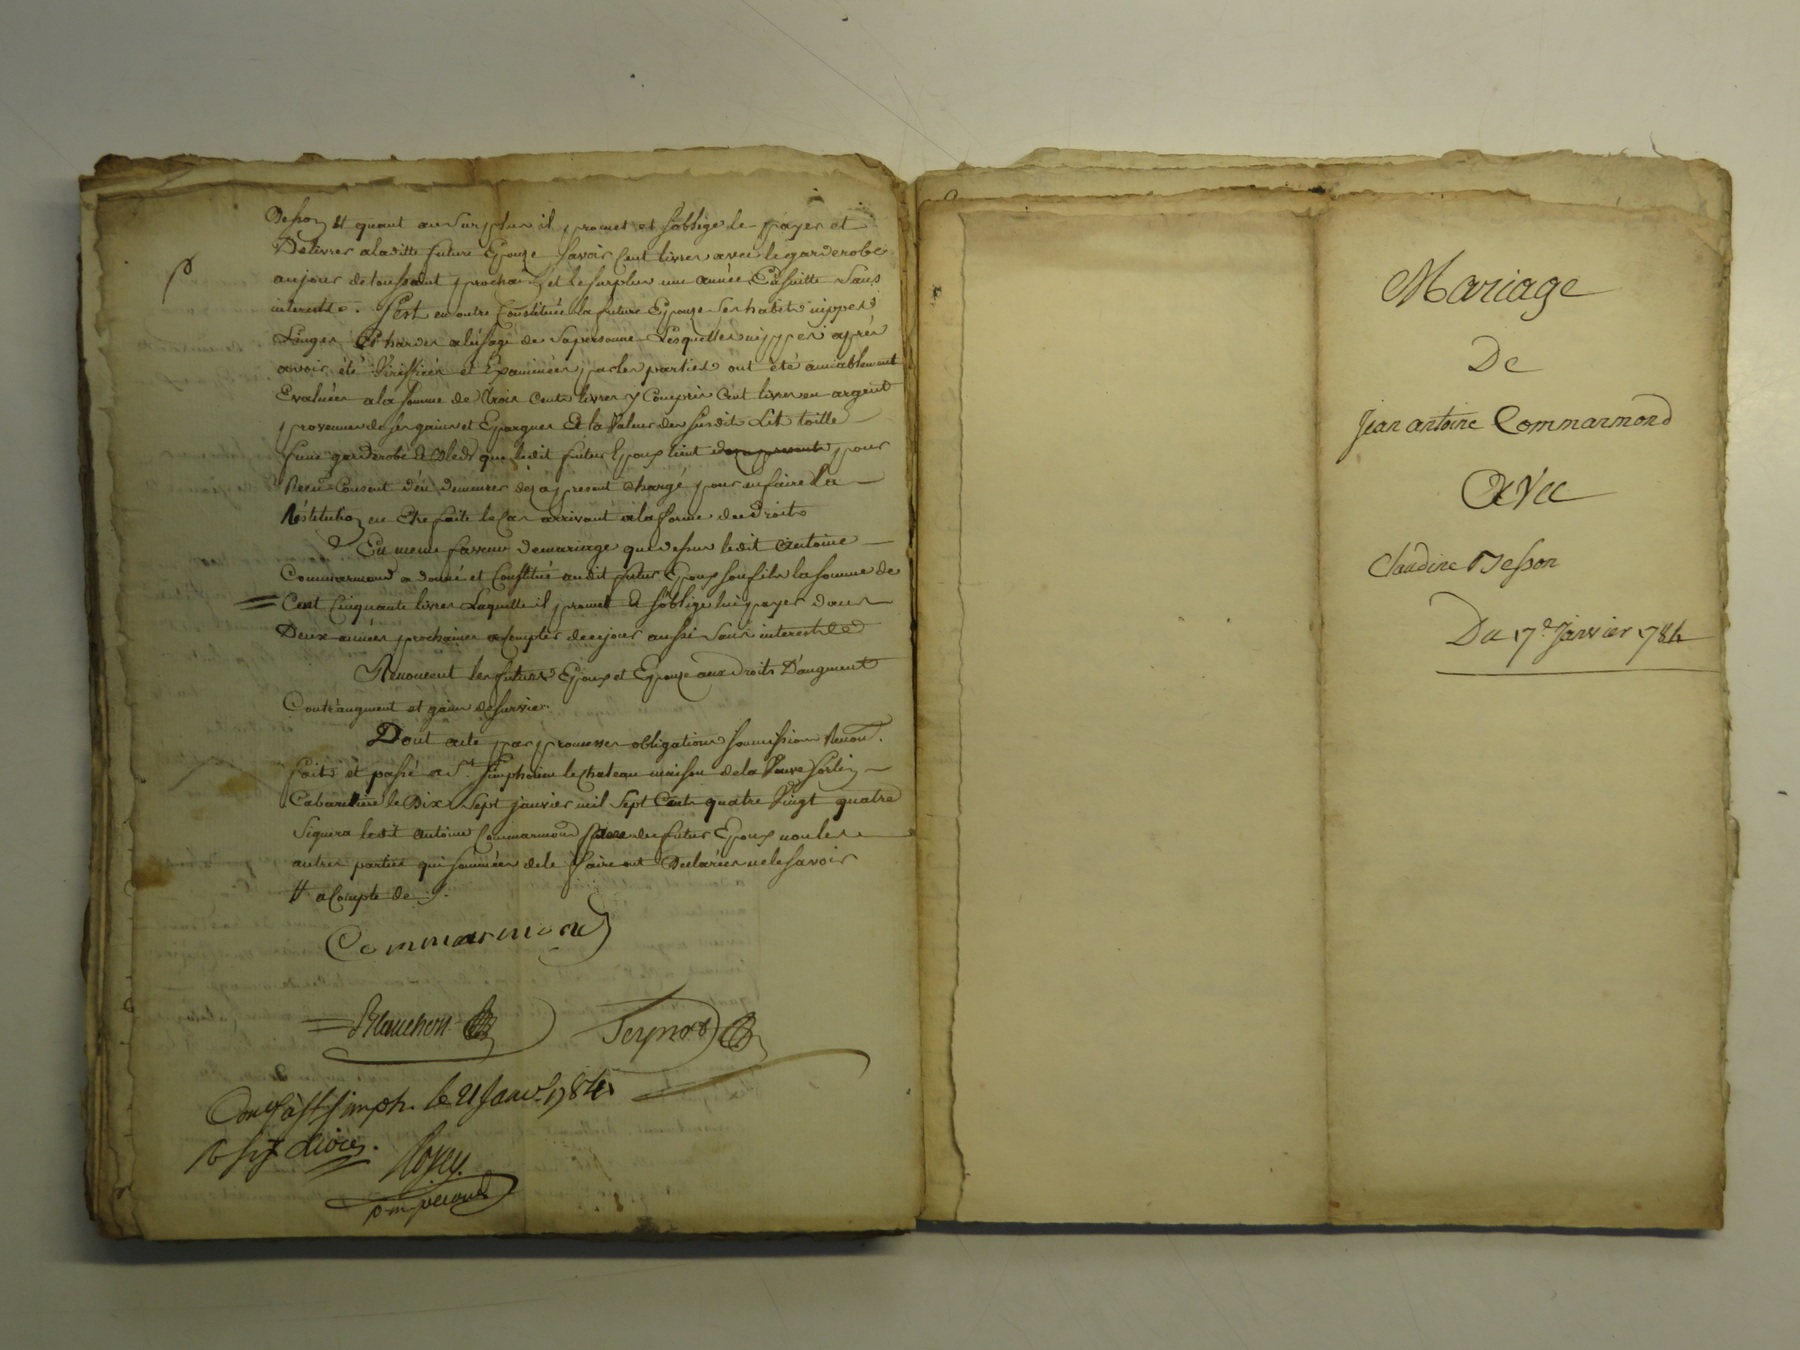 Besson H quant au surplus il promet et s'oblige le payer et
Delivrer aladitte future Epouze savoir Cent livres avec le garderobe
au jour de toussaint prochain, et le surplus une année Ensuitte sans
interests. S'est en outre Constituée la future Epouze ses habits nippes
Linges Et hardes a l'usage de sa personne Lesquelles nippes après
avoir été Vériffiées et Examinées par les parties ont été amiablement
Evaluées a la somme de trois Cents livres y Compris Cent livres en argent
provenues de ses gains et Epargnes Et la Valeur des susdits Lit toille
garderobe que ledit futur Epoux tient pour
Reçu Consent d'en demeurer dez a present Chargé pour en faire la
Réstitution en Etre faite le Cas arrivant a la forme du droit
En meme faveur de mariage que dessus ledit Antoine
Commarmond a donné et Constitué audit futur Epoux son fils la somme de
Cent Cinquante livres Laquelle il promet Et s'oblige lui payer dans
Deux années prochaines a Compter de ce jour aussi sans interests
Renoncent les futurs Epoux et Epouze aux Droits D'augment
Contr'augment et gains de survie.
Dont acte par promesses obligations soumissions Renon.
fait et passé a St. simphorien le Chateau maison de la Veuve
Cabaretiere le Dix Sept janvier mil Sept Cents quatre Vingt quatre
Signera ledit antoine Commarmond pere du futur Epoux non les
autres parties qui sommées de le faire ont Declarées ne le savoir
H a Compte de
Commarmond
Blanchon Seynord
à St simph. le 21 Janv. 1784
Mariage
De
Jean antoine Commarmond
Avec
Claudine Besson
Du 17e. Janvier 1784